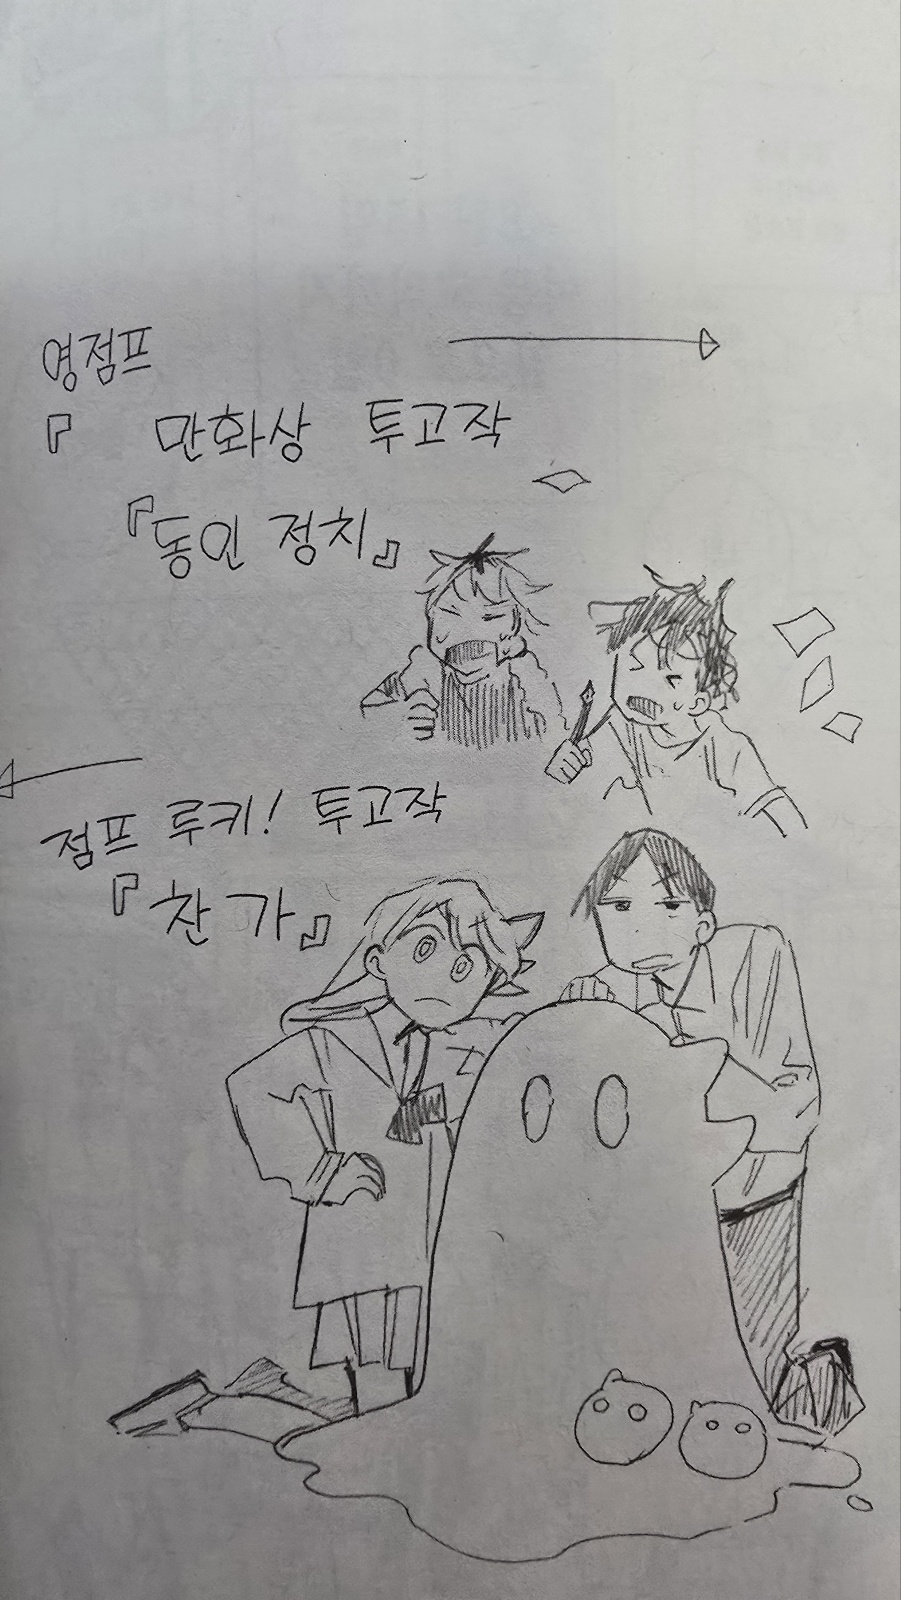 영점프
『 만화상 투고작
『동인 정치』
점프 루키! 투고작
『찬가』